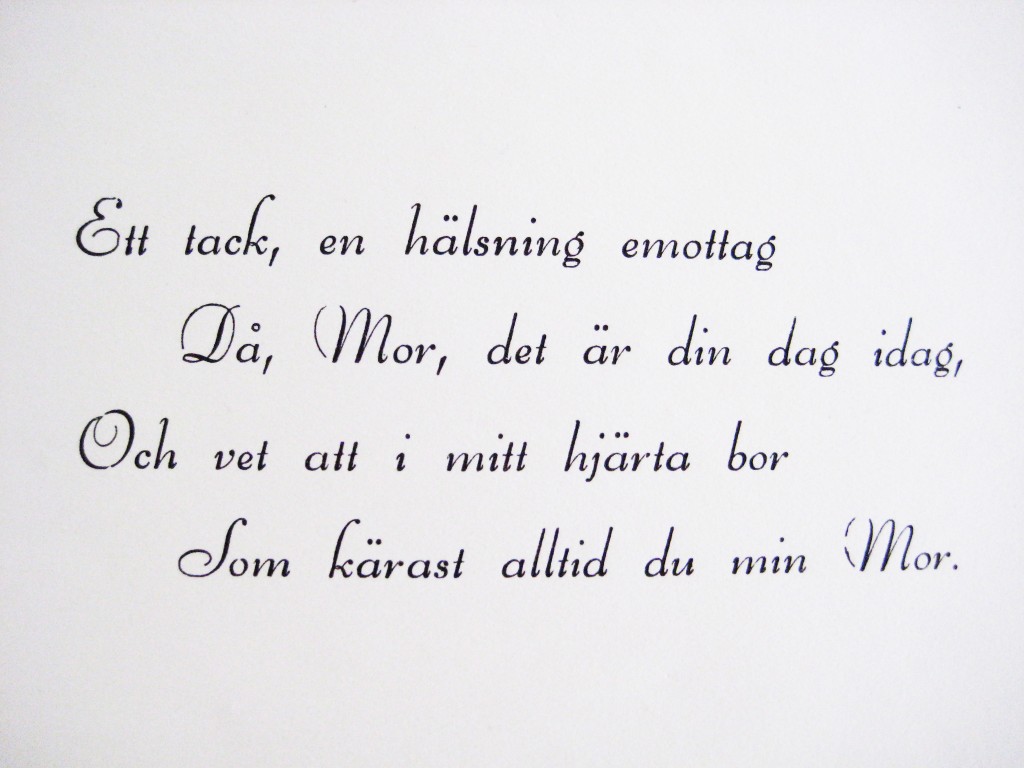 Ett tack, en hälsning emottag
Då, Mor, det är din dag idag,
Och vet att i mitt hjärta bor
Som kärast alltid du min Mor.